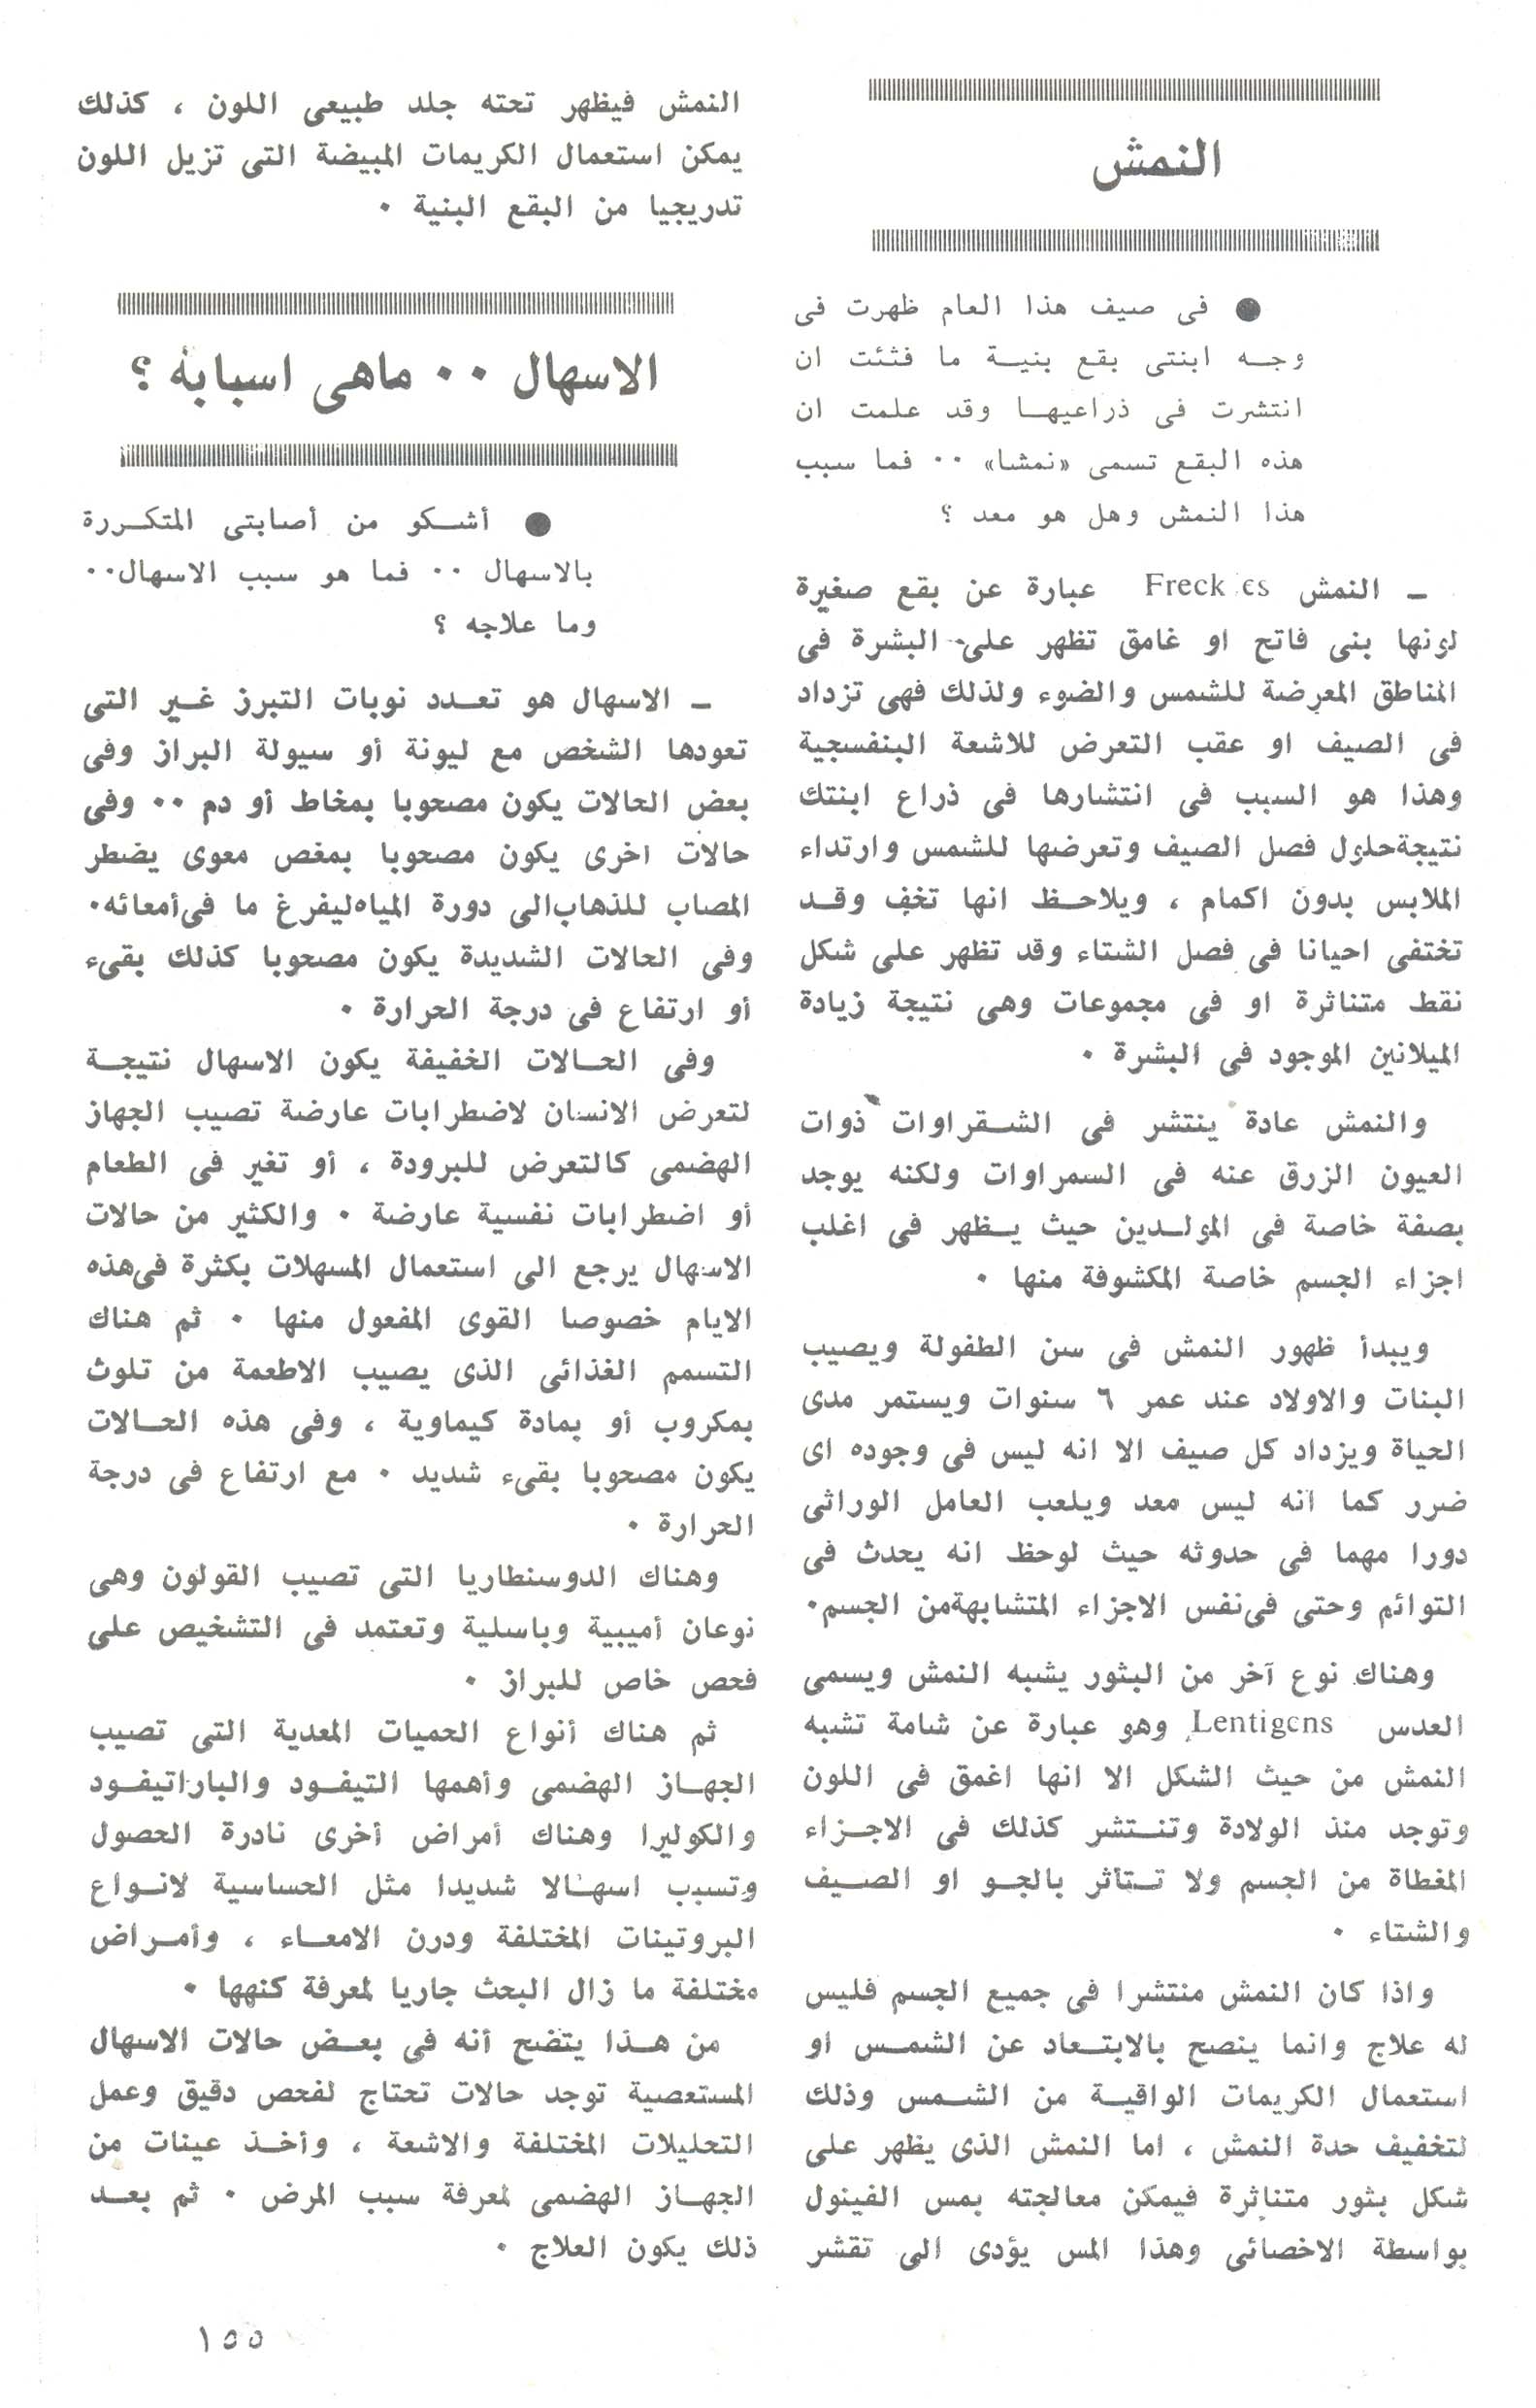 النمش
● فى صيف هذا العام ظهرت فى
وجـه ابنتى بقع بنيـة ما فتئت ان
انتشرت فى ذراعيهـا وقد علمت ان
هذه البقع تسمى «نمشا» ٠٠ فما سبب
هذا النمش وهل هو معد ؟
ـ النمش Freck es عبارة عن بقع صغيرة
لونها بنى فاتح او غامق تظهر على البشرة فى
المناطق المعرضة للشمس والضوء ولذلك فهى تزداد
فى الصيف او عقب التعرض للاشعة البنفسجية
وهذا هو السبب فى انتشارها فى ذراع ابنتك
نتيجة حلول فصل الصيف وتعرضها للشمس وارتداء
الملابس بدون اكمام ، ويلاحـظ انها تخف وقـد
تختفى احيانا فى فصل الشتاء وقد تظهر على شكل
نقط متناثرة او فى مجموعات وهى نتيجة زيادة
الميلانين الموجود فى البشرة ٠
والنمش عادة ينتشر فى الشـقراوات ذوات
العيون الزرق عنه فى السمراوات ولكنه يوجد
بصفة خاصة فى المولـدين حيث يـظهر فى اغلب
اجزاء الجسم خاصة المكشوفة منها ٠
ويبدأ ظهور النمش فى سن الطفولة ويصيب
البنات والاولاد عند عمر ٦ سنوات ويستمر مدى
الحياة ويزداد كل صيف الا انه ليس فى وجوده اى
ضرر كما انه ليس معد ويلعب العامل الوراثى
دورا مهما فى حدوثه حيث لوحظ انه يحدث فى
التوائم وحتى فى نفس الاجزاء المتشابهة من الجسم٠
وهناك نوع آخر من البثور يشبه النمش ويسمى
العدس Lentigens وهو عبارة عن شامة تشبه
النمش من حيث الشكل الا انها اغمق فى اللون
وتوجد منذ الولادة وتنـتشر كذلك فى الاجـزاء
المغطاة من الجسم ولا تـتأثر بالجـو او الصـيف
والشتاء ٠
واذا كان النمش منتشرا فى جميع الجسم فليس
له علاج وانما ينصح بالابتـعاد عن الشمـس او
استعمال الكريمات الواقيـة من الشـمس وذلك
لتخفيف حدة النمش ، اما النمش الذى يظهر على
شكل بثور متناثرة فيمكن معالجته بمس الفينول
بواسطة الاخصائى وهذا المس يؤدى الى تقشر
النمش فيظهر تحته جلد طبيعى اللون ، كذلك
يمكن استعمال الكريمات المبيضة التى تزيل اللون
تدريجيا من البقع البنية ٠
الاسهال ٠٠ ماهى اسبابه ؟
● أشـكو من أصابتى المتكـررة
بالاسهال ٠٠ فما هو سبب الاسهال٠٠
وما علاجه ؟
ـ الاسهال هو تعـدد نوبات التبرز غـير التى
تعودها الشخص مع ليونة أو سيولة البراز وفى
بعض الحالات يكون مصحوبا بمخاط أو دم ٠٠ وفى
حالات اخرى يكون مصحوبا بمغص معوى يضطر
المصاب للذهاب الى دورة المياه ليفرغ ما فى أمعائه٠
وفى الحالات الشديدة يكون مصحوبا كذلك بقىء
أو ارتفاع فى درجة الحرارة ٠
وفى الحـالات الخفيفة يكون الاسهال نتيجـة
لتعرض الانسان لاضطرابات عارضة تصيب الجهاز
الهضمى كالتعرض للبرودة ، أو تغير فى الطعام
أو اضطرابات نفسية عارضة ٠ والكثير من حالات
الاسهال يرجع الى استعمال المسهلات بكثرة فى هذه
الايام خصوصا القوى المفعول منها ٠ ثم هناك
التسمم الغذائى الذى يصيب الاطعمة من تلوث
بمكروب أو بمادة كيماوية ، وفى هذه الحـالات
يكون مصحوبا بقىء شديد ٠ مع ارتفاع فى درجة
الحرارة ٠
وهناك الدوسنطاريا التى تصيب القولون وهى
نوعان أميبية وباسلية وتعتمد فى التشخيص على
فحص خاص للبراز ٠
ثم هناك أنواع الحميات المعدية التى تصيب
الجهـاز الهضمى وأهمها التيفـود والباراتيفـود
والكوليرا وهناك أمراض أخرى نادرة الحصول
وتسبب اسهـالا شديدا مثل الحساسية لانـواع
البروتينات المختلفة ودرن الامعـاء ، وأمـراض
مختلفة ما زال البحث جاريا لمعرفة كنهها ٠
من هـذا يتضح أنه فى بعـض حالات الاسهال
المستعصية توجد حالات تحتاج لفحص دقيق وعمل
التحليلات المختلفة والاشعة ، وأخـذ عينات من
الجهـاز الهضمى لمعرفة سبب المرض ٠ ثم بعـد
ذلك يكون العلاج ٠
١٥٥